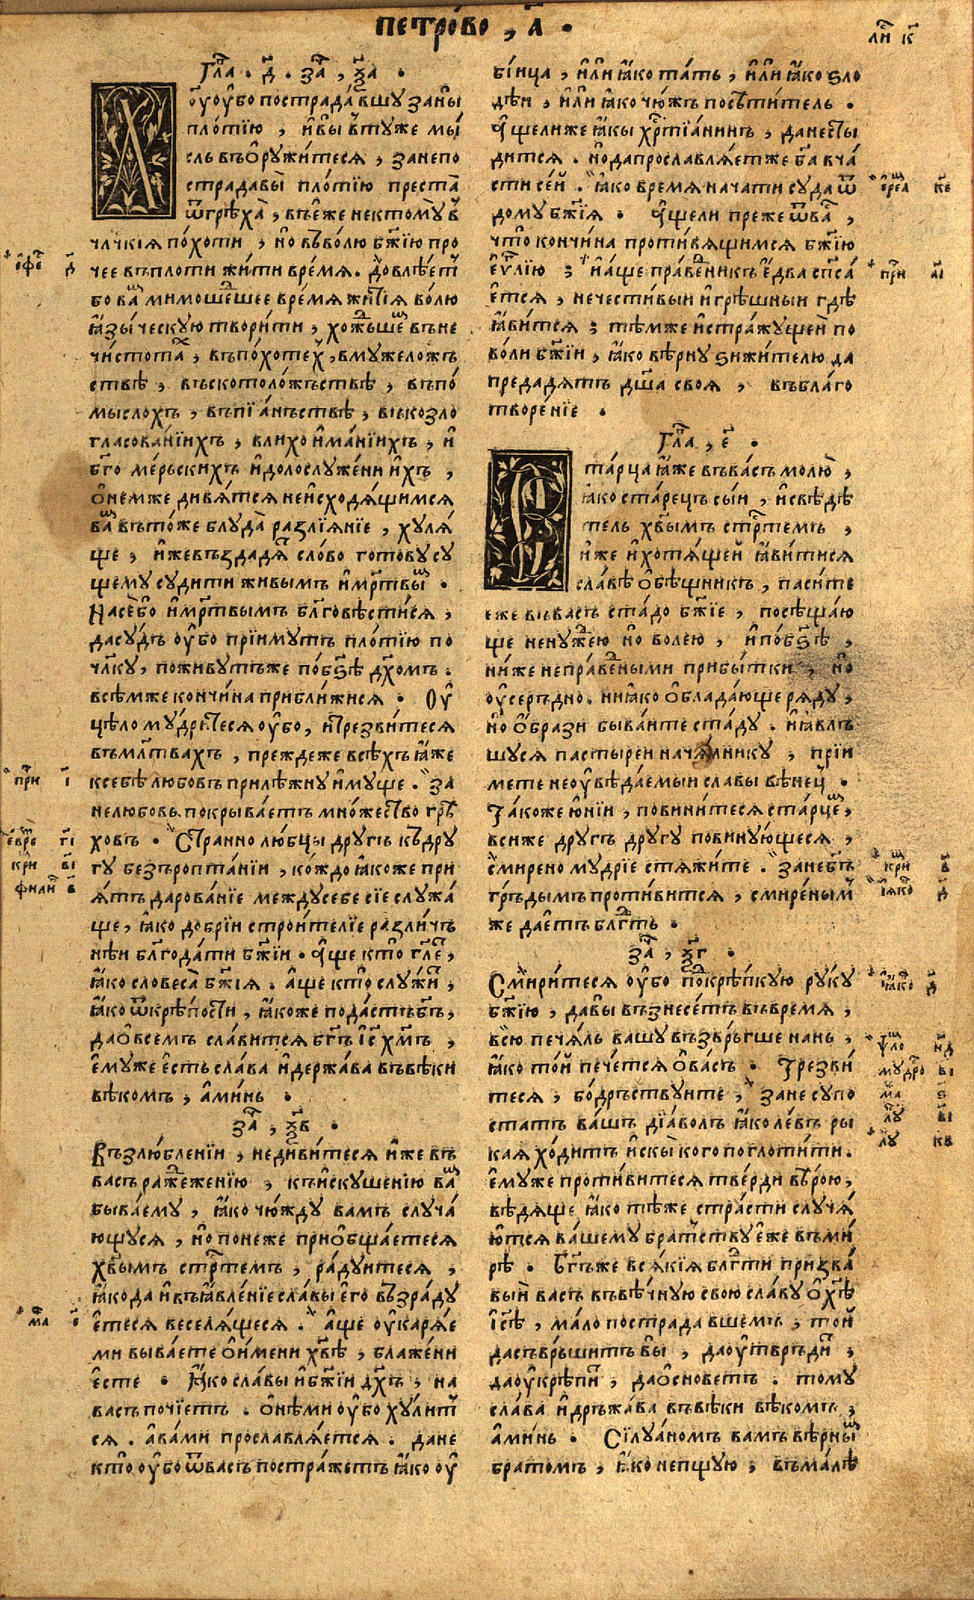 петро́во , а҃ .
ли҃ к҃
Гла҃ . д҃ . за҃ , х҃а .
Х оу҆бо пострада́вшу за ны̀
пло́тїю , и҆ вы̀ в тꙋже мы́
сль въѡрꙋжи́теся , зане по
страдавы̀ пло́тїю престà
ѿ грѣха̀ , въ е҆же не ктомꙋ̀ в
чл҃чкїя по́хоти , но въ во́лю бж҃їю про
чее въ плоти жи́ти вре́мя . Довлѣ́етъ
бо ва́мъ мимошешее вре́мя житїѧ̀ во́лю
ꙗ҆зы́ческую твори́ти , хо́жъше въ не
чистота , въ по́хотех , в мужело́жъ
ствѣ , въ скотоло́жъствѣ , въ по́
мыслохъ , въ пїа́нъствѣ , въ козло
гласова́нїихъ , в ли́хоима́нїихъ , и҆
бг҃о ме́рьскихъ и҆долослуже́нїихъ ,
ѻ҆ нем же дивя́тся не и҆сходя́щимся
ва въ то́же блꙋда̀ разлїѧ́нїе , хꙋля́
ще , и҆же въздадя́ сло́во гото́вꙋ сꙋ
щемꙋ сꙋди́ти живымъ и҆ мр҃твы .
На се́ бо и҆ мр҃твымъ бл҃говѣсти́ся ,
да сꙋ́дъ оу҆бо прїи́мутъ пло́тїю по
чл҃кꙋ , поживꙋ́тъже по бз҃ѣ дх҃омъ .
всѣ́мже кончи́на прибли́жися . Оу҆
цѣломꙋдретеся оу҆бо , и҆ трезви́теся
въ мл҃твахъ , преж дeже всѣ́хъ ꙗ҆же
к себѣ̀ любо́вь прилѣ́жнꙋ и҆мꙋще . За
не любо́вь покрыва́етъ мно́жество грѣ
хо́въ . Странно лю́бцы дрꙋгъ къ дрꙋ
гꙋ без ъроптанїи , ко́ждо ꙗ҆коже при
ѧ́тъ дарова́нїе междꙋ себе сїе слꙋжа́
ще , ꙗ҆ко добрїи строи́телїе разли́чъ
нѣи бл҃года́ти бж҃їи . А҆ще кто̀ гл҃е ,
ꙗ҆ко словеса̀ бж҃їя . а҆ще кто слꙋжи́ ,
ꙗ҆ко ѿ крѣ́пости , ꙗ҆коже пода́стъ бг҃ъ ,
да ѡ҆ всемъ сла́вится бг҃ъ і҆с х҃мъ ,
є҆мꙋже е҆сть сла́ва и҆ держа́ва въ вѣ́ки
вѣкомъ , а҆ми́нь .
за҃ , х҃в .
Възлю́бленїи , не диви́теся и҆же въ
васъ раже́женїю , къ и҆скꙋшенїю ва
быва́емꙋ , ꙗ҆ко чю́ждꙋ вамъ слꙋча́
ющꙋся , но поне́же приѻ҆бща́етеся
хв҃ымъ стр҃темъ , ра́дꙋитеся ,
ꙗ҆ко да и҆ въ ꙗ҆вле́нїе сла́вы е҆го̀ възра́дꙋ
е҆теся веселя́щеся . а҆ще оу҆каря́е
ми быва́ете ѻ҆ и҆мени хв҃ѣ , блаже́ни
е҆сте . Ꙗ҆ко сла́вы и҆ бж҃їи дх҃ъ , на
васъ почїетъ . ѻ҆ нѣ́ми оу҆бо хꙋ́лит
ся . а҆ ва́ми прославля́ется . да не
кто̀ оу҆бо ѿ васъ постра́жетъ ꙗ҆ко оу҆
бі́ица , и҆ли ꙗ҆ко та́ть , и҆ли ꙗ҆ко ѕло
дѣ́и , и҆ли ꙗ҆ко чю́жъ посѣти́тель .
А҆ще ли же ꙗ҆кы хр҃тїа́нинъ , да не сты
ди́тся . но да прославля́етже бг҃а в ча́
сти се́й . ꙗ҆ко вре́мя нача́ти сꙋда̀ ѿ
до́мꙋ бж҃їя . А҆ще ли преже ѿ ва́ ,
что кончи́на проти́вящимся бж҃їю
еѵ҃лїю ; и҆ а҆ще пра́веникъ е҆два̀ сп҃са
е҆тся , нечести́выи и҆ грѣшныи гдѣ
ꙗ҆ви́тся ; тѣ́мже и҆ стра́жꙋщеи по
во́ли бж҃їи , ꙗ҆ко вѣ́рнꙋ ѕижи́телю да
предадя́тъ дш҃а своя̀ , въ бла́го
творе́нїе .
Гла҃ , е҃ .
Старца ꙗ҆же въ ва́съ молю̀ ,
ꙗ҆ко ста́рецъ сыи , и҆ свѣдѣ́
тель хв҃ымъ стр҃темъ ,
и҆же и҆ хотя́щей ꙗ҆ви́тися
сла́вѣ ѻ҆бѣ́щникъ , паси́те
еже въ васъ ста́до бж҃їе , посѣща́ю
ще не нꙋ́жею но во́лею , и҆ по бз҃ѣ ,
ни́же непра́веными прибы́тки , но
оу҆се́рдно . ни ꙗ҆ко ѻ҆блада́юще ря́дꙋ ,
но ѻ҆́брази быва́ите ста́дꙋ . и҆ ꙗ҆вль
шꙋся пастыреи нача́лникꙋ , прїи
мете не оу҆вѣда́емыи сла́вы вѣне́ц .
Тако́же ю҆нїи , повини́теся ста́рце ,
вси же дрꙋгъ дрꙋгꙋ повинꙋ́ющеся ,
смирено мꙋ́дрїе стяжи́те . Зане бг҃ъ
го́рдымъ проти́вится , смире́ным
же дае́тъ бл҃гть .
за҃ , х҃г .
Смири́теся оу҆бо по крѣ́пкꙋю рꙋ́кꙋ
бж҃їю , да вы̀ възнесе́тъ въ вре́мя ,
всю печа́ль ва́шꙋ възве́ргше на нь ,
ꙗ҆ко то́й пече́тся ѻ҆ васъ . Трезви́
теся , бо́дръствꙋите , зане сꙋпо
ста́тъ ва́шъ дїа́волъ ꙗ҆ко ле́въ ры
кая хо́дитъ и҆скы̀ кого поглоти́ти .
е҆мꙋже проти́витеся тве́рди вѣ́рою ,
вѣ́дяще ꙗ҆ко тѣ́же стра́сти слꙋча́
ются ва́шемꙋ бра́тствꙋ е҆же въ ми́
рѣ . Бг҃ъже вся́кїя бл҃гти призва́
вый васъ въ вѣ́чнꙋю свою сла́вꙋ ѻ҆ х҃ѣ
і҆с҃ѣ , ма́ло пострада́вшемъ , то́й
да съвръши́тъ вы̀ , да оу҆твръди́ ,
да оу҆крѣпи́ , да ѻ҆сноветъ . томꙋ
сла́ва и҆ дръжа́ва въ вѣ́ки вѣ́комъ ,
а҆ми́нь . Силꙋа́номъ вамъ вѣ́рны
бра́томъ , ꙗ҆ко непщꙋю , въ ма́лѣ
ефе д҃
при і҃
евре г҃і
кри в҃і
фили в҃
ма е҃
ереа к҃е
при а҃і
кри в҃
іяко д҃
іако д҃
ѱло н҃д
мꙋдро в҃і
ма ѕ҃
лꙋ в҃і
лꙋ к҃в